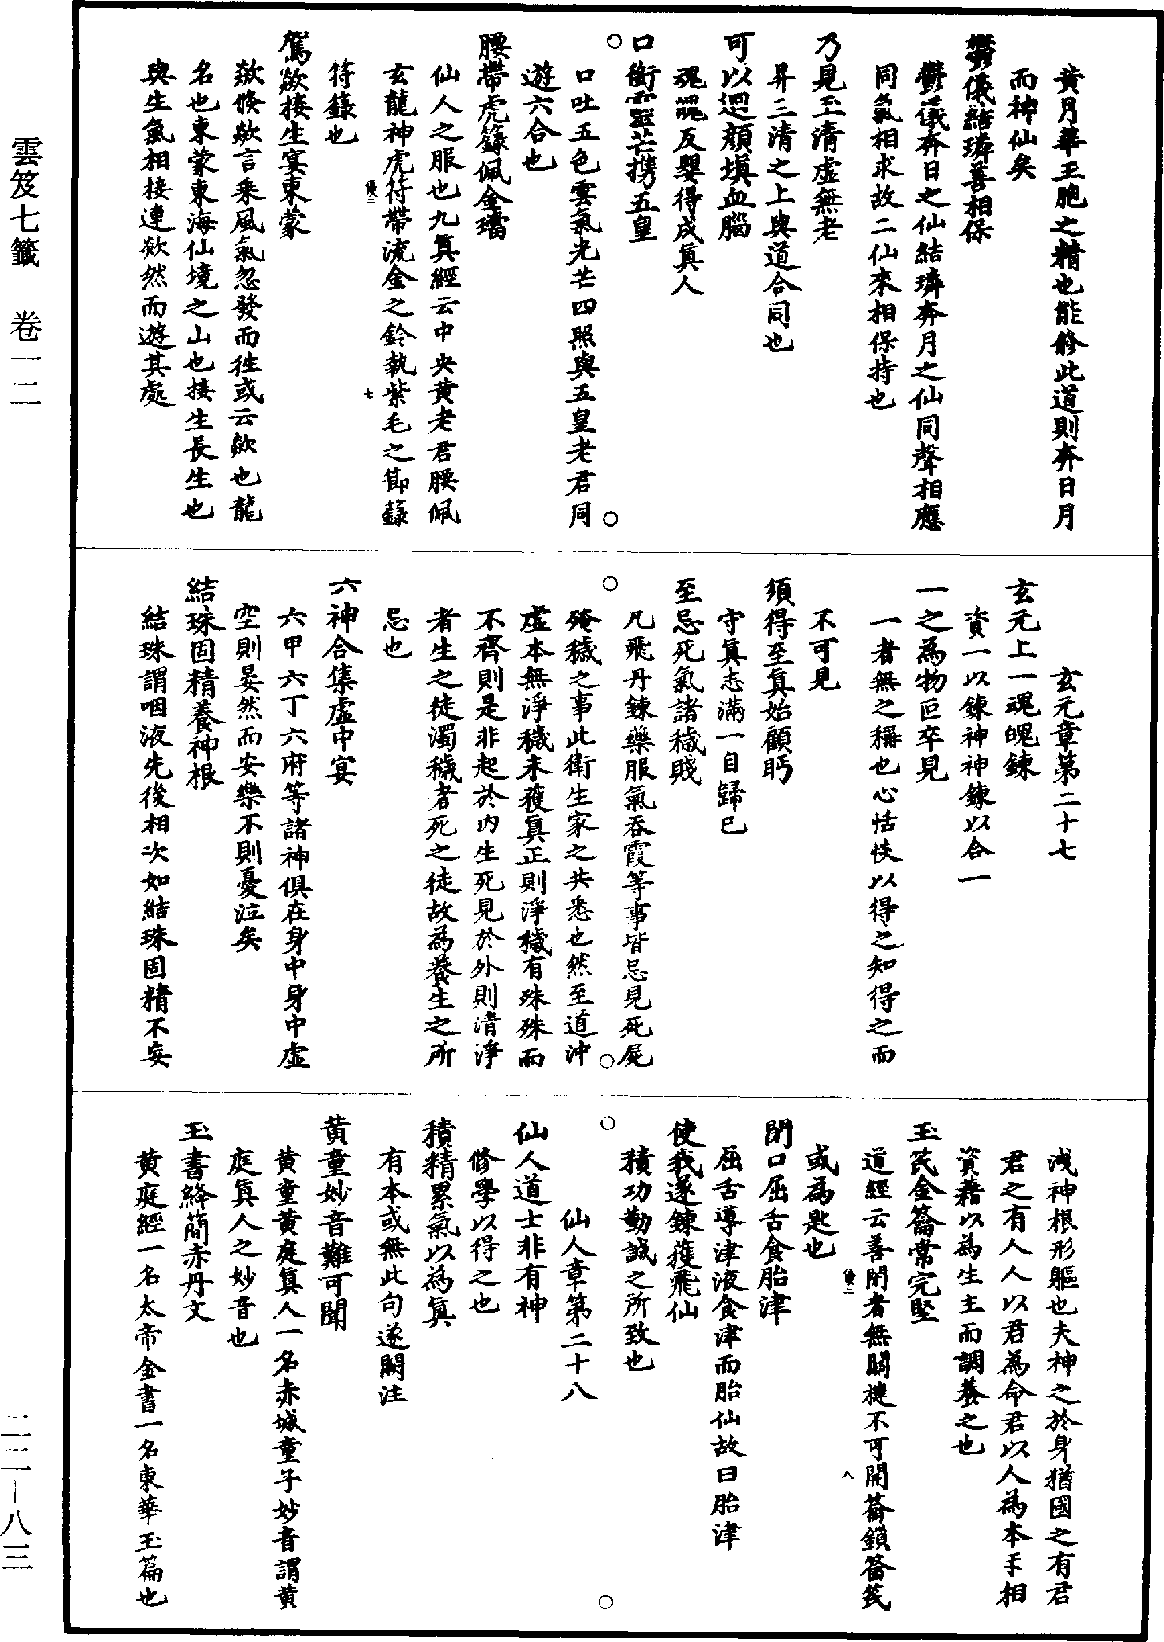 雲笈七籤　卷一二
黃月華玉胞之精也能修此道則奔日月
而神仙矣
鬱儀結璘善相保
鬱儀奔日之仙結璘奔月之仙同聲相應
同氣相求故二仙來相保持也
乃見玉清虛無老
昇三清之上與道合同也
可以迴顏填血腦
魂魄反嬰得成真人
口銜靈芒攜五皇
口吐五色雲氣光芒四照與五皇老君同
遊六合也
腰帶虎籙佩金璫
仙人之服也九真經云中央黃老君腰佩
玄龍神虎符帶流金之鈴執紫毛之節籙
符籙也
駕欻接生宴東蒙
欻倏欻言乘風氣忽發而往或云欻也龍
名也東蒙東海仙境之山也接生長生也
與生氣相接連欻然而遊其處
七
玄元章第二十七
玄元上一魂魄鍊
資一以鍊神神鍊以合一
一之為物叵卒見
一者無之稱也心恬惔以得之知得之而
不可見
須得至真始顧眄
守真志滿一自歸已
至忌死氣諸穢賤
凡飛丹鍊藥服氣吞霞等事皆忌見死屍
殗穢之事此衛生家之共悉也然至道沖
虛本無淨穢未獲真正則淨穢有殊殊而
不齊則是非起於內生死見於外則清淨
者生之徒濁穢者死之徒故為養生之所
忌也
六神合集虛中宴
六甲六丁六府等諸神俱在身中身中虛
空則晏然而安樂不則憂泣矣
結珠固精養神根
結珠謂咽液先後相次如結珠固精不妄
洩神根形軀也夫神之於身猶國之有君
君之有人人以君為命君以人為本乎相
資藉以為生主而調養之也
玉𥬰金籥常完堅
道經云善閉者無關楗不可開籥鎖籥𥬰
或為匙也
閉口屈舌食胎津
屈舌導津液食津而胎仙故曰胎津
使我遂鍊獲飛仙
積功勤誠之所致也
八
仙人章第二十八
仙人道士非有神
修學以得之也
積精累氣以為真
有本或無此句遂闕注
黃童妙音難可聞
黃童黃庭真人一名赤城童子妙音謂黃
庭真人之妙音也
玉書絳簡赤丹文
黃庭經一名太帝金書一名東華玉篇也
二二—八三